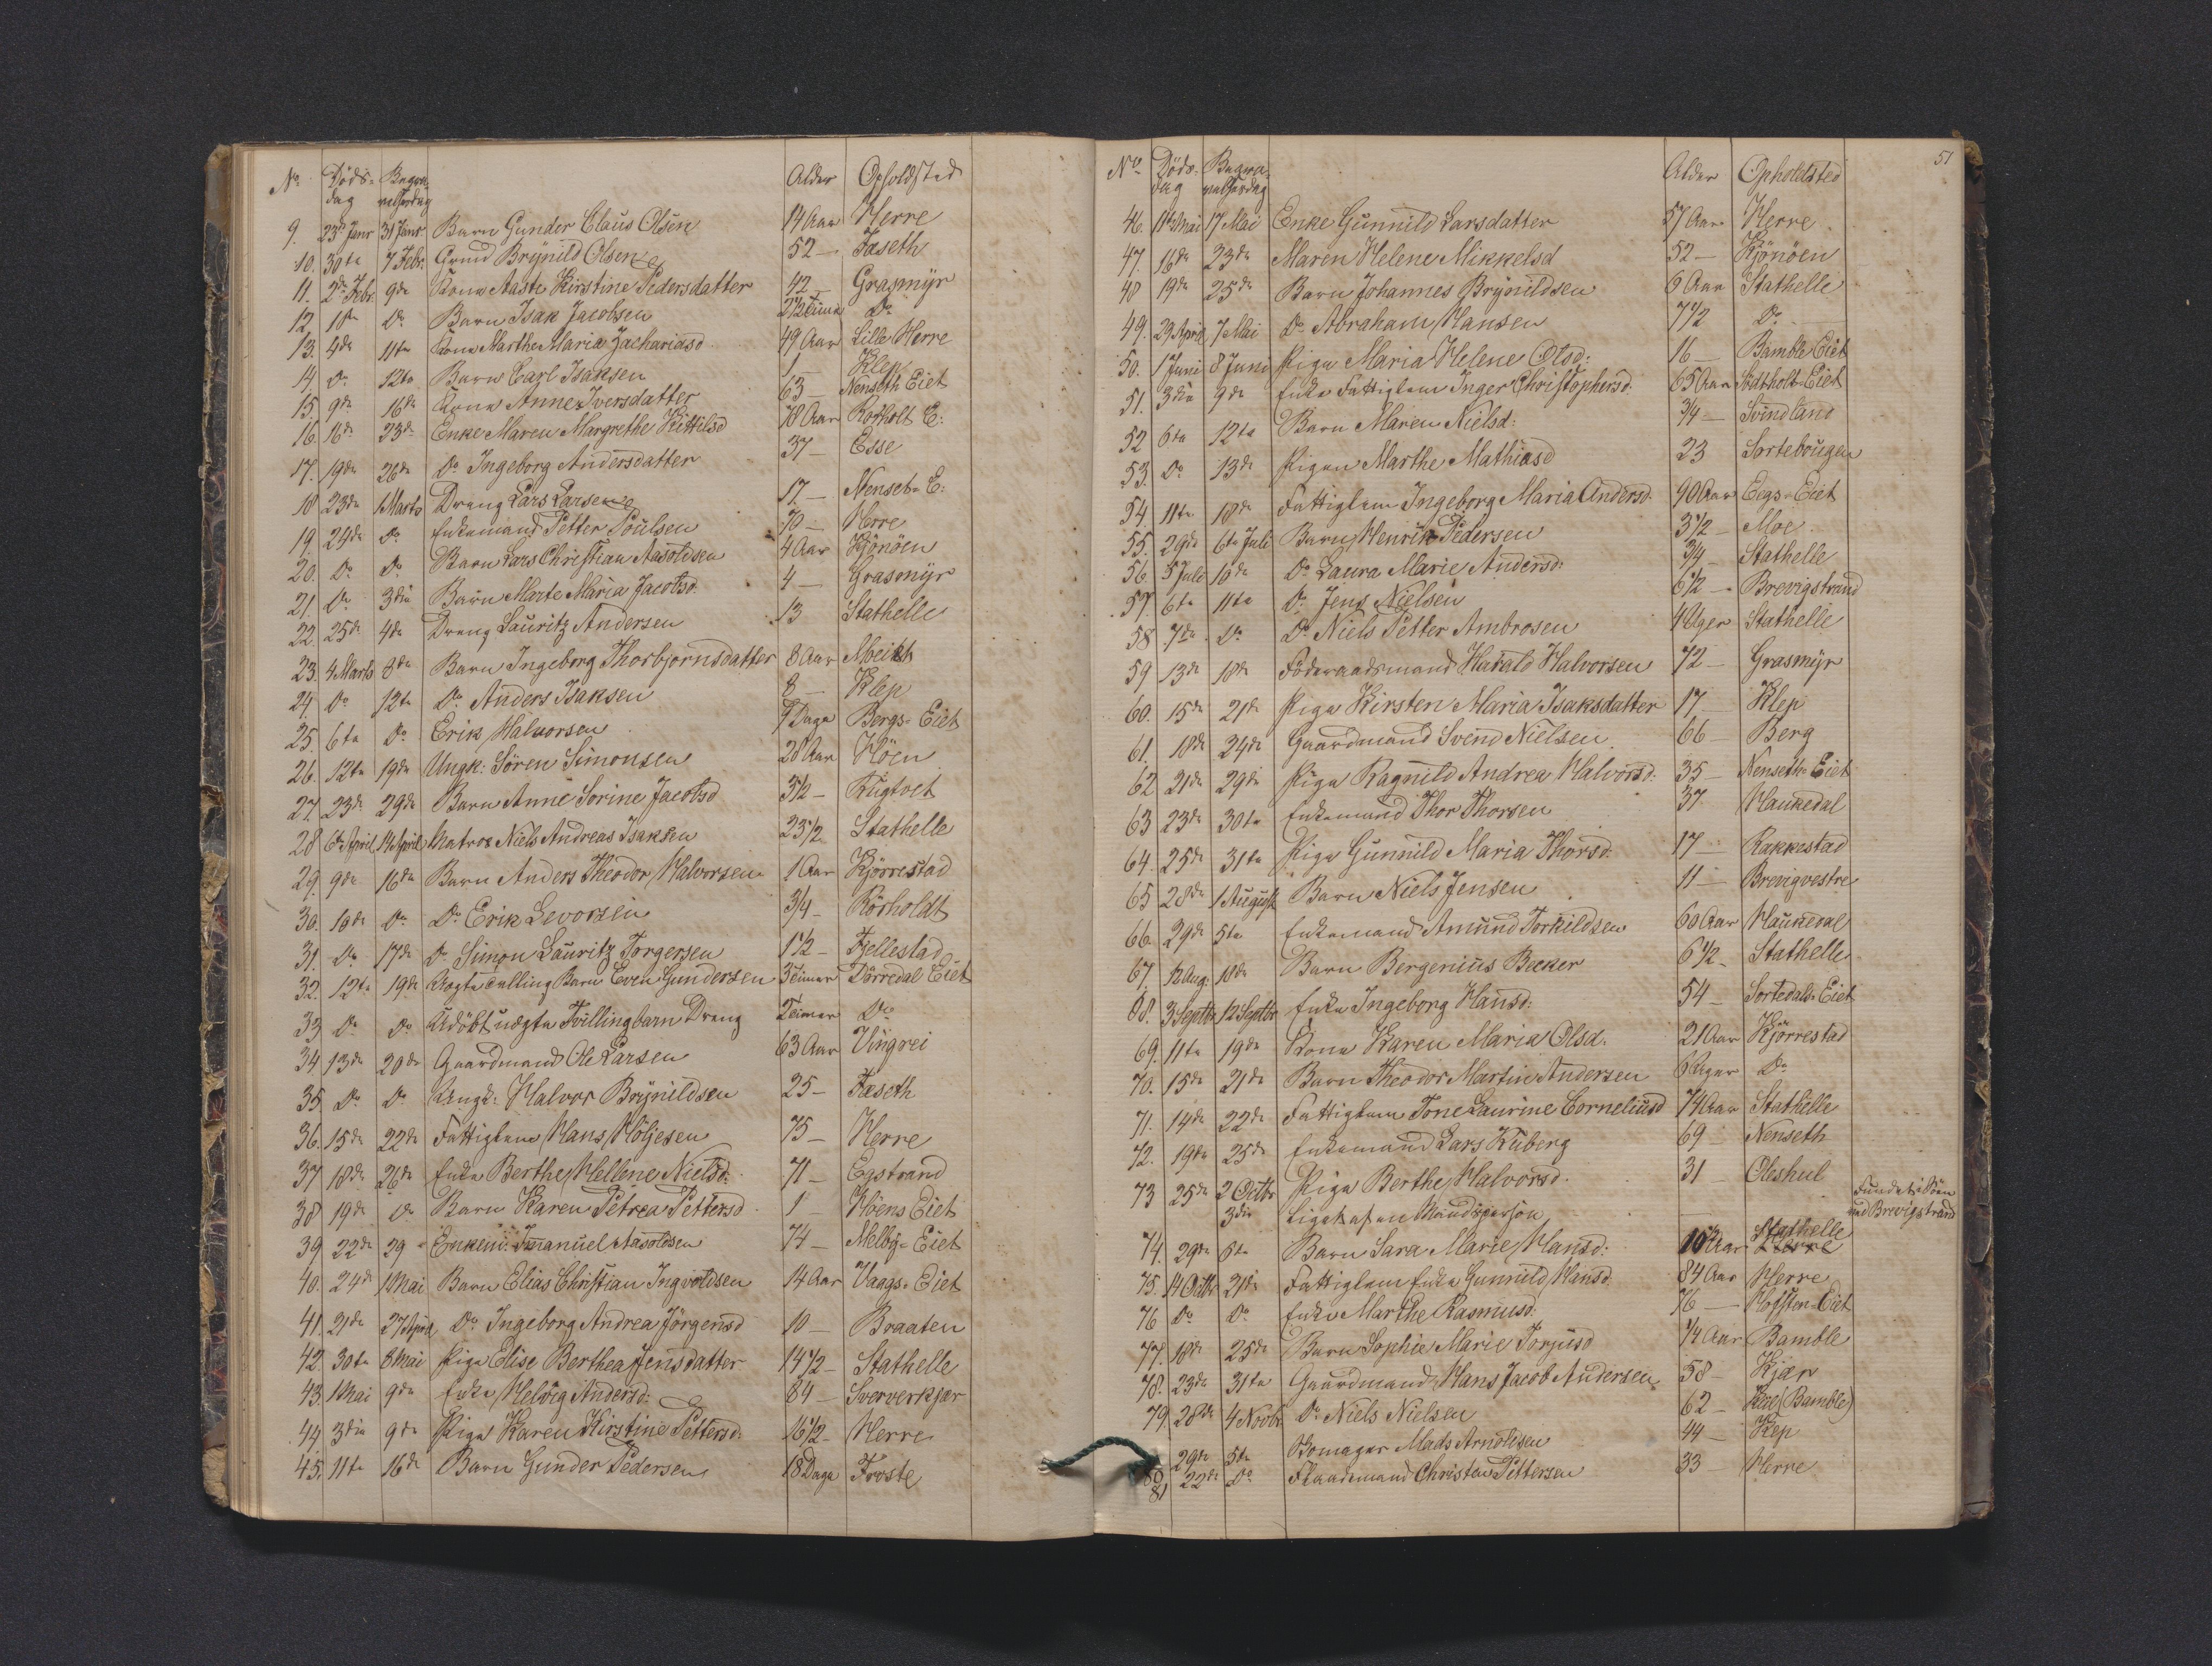 No Döds- Begra- Alder Opholdsted
dag velsesdag
9. 23de Janr 31 Janr Barn Gunder Claus Olsen 14 Aar Herre
10. 30te 7 Febr. Gmd Brynild Olsen 52 — Fæseth
11. 2de Febr. 9de Kone Aaste Kirstine Pedersdatter 42 — Grasmyr
12. Do Barn Isak Jacobsen Do
13. 4de 11te Kone Marthe Maria Zachariasd 49 Aar Lille Herre
14. Do 12te Barn Carl Isaksen 1 — Klep
15. 9de 16de Kone Anne Iversdatter 63 — Nenseth Eiet
16. 16de 23de Enke Maren Margrethe Kittilsd 78 Aar Rørholt E:
17. 19de 26de Do Ingeborg Andersdatter 37 — Esse
18 23de 1 Marts Dreng Lars Larsen 17. — Nenset- E:
19. 24de Do Enkemand Petter Poulsen 70 — Herre
20. Do Do Barn Lars Christian Aasoldsen 4 Aar Kjönöen
21. Do 3die Barn Marte Maria Jacobsd. 4 — Grasmyr
22. 25de 4de Dreng Lauritz Andersen 13 Stathelle
23. 4 Marts 8de Barn Ingeborg Thorbjornsdatter 8 Aar
24. Do 12te Do Anders Isaksen 8 — Klep
25. 6te Do Erik Halvorsen 7 Dage Bergs- Eiet
26. 12te 19de Ungk: Sören Simonsen 28 Aar Höen
27. 23de 29de Barn Anne Sorine Jacobsd 3 1/2 — Rugtvet
28 6te April 14 April Matros Niels Andreas Isaksen 23 1/2 Stathelle
29. 9de 16de Barn Anders Theodor Halvorsen 1 Aar Kjörrestad
30. 10de Do Do Erik Levorsen 3/4 — Rörholdt
31. Do 17de Do Simon Lauritz Torgersen 1 1/2 — Fjellestad
32. 12te 19de Uægte Tvilling Barn Even Gundersen 3 Timer Dörredal Eiet
33 Do Do Udöbt uægte Tvillingbarn Dreng Timer Do
34. 13de 20de Gaardmand Ole Larsen 63 Aar Vingrei
35. Do Do Ungk: Halvor Brynildsen 25 — Fæseth
36. 15de 22de Fattiglem Hans Höljesen 75 — Herre
37 18de 26de Enke Berthe Hellene Nielsd. 71 — Egstrand
38 19de Do Barn Karen Petrea Pettersd 1 — Höens Eiet
39 22de 29 — Enkem: Imanuel Aasoldsen 74 — Melby- Eiet
40. 24de 1 Mai Barn Elias Christian Ingvoldsen 14 Aar Vaags- Eiet
41. 21de 27 April Do Ingeborg Andrea Jörgensd 10 — Braaten
42. 30te 8 Mai Pige Elise Berthea Jensdatter 14 1/2 — Stathelle
43. 1 Mai 9de Enke Helvig Andersd: 84 — Sververkjær
44. 3die 9de Pige Karen Kirstine Pettersd. 16 1/2 — Herre
45. 11te 16de Barn Gunder Pedersen 18 Dage Froste
51
No Döds- Begra- Alder Opholdsted
dag velsesdag
46. 11te Mai 17 Mai Enke Gunnild Larsdatter 57 Aar Herre
47. 16de 23de Maren Helene Mikkelsd 52 — Kjönöen
48 19de 25de Barn Johannes Brynildsen 6 Aar Stathelle
49. 29 April 7 Mai Do Abraham Hansen 7 1/2 Do
50. 1 Juni 8 Juni Pige Maria Helene Olsd: 16 — Bamble Eiet
51. 3die 9de Enke Fattiglem Inger Christophersd. 65 Aar Södtholt- Eiet
52 6te 12te Barn Maren Nielsd: 3/4 — Svindland
53. Do 13de Pigen Marthe Mathiasd 23 Sortebougen
54. 11te 18de Fattiglem Ingeborg Maria Andersd. 90 Aar Eegs- Eiet
55. 29de 6te Juli Barn Henrik Pedersen 3 1/2 — Moe
56. 5 Juli 10de Do Laura Marie Andersd: 3/4 — Stathelle
57. 6te 11te Do Jens Nielsen 6 1/2 — Brevigstrand
58 7de Do Do Niels Petter Ambrosen 4 Uger Stathelle
59 13de 18de Föderaadsmand Harald Halvorsen 72 — Grasmyr
60. 15de 21de Pige Kirsten Maria Isaksdatter 17 — Klep
61. 18de 24de Gaardmand Svend Nielsen 66 — Berg
62 21de 29de Pige Ragnild Andrea Halvorsd: 35 — Nenseth- Eiet
63 23de 30te Enkemand Thor Thorsen 37 Haukedal
64. 25de 31te Pige Gunnild Maria Thorsd: 17 — Rakkestad
65 28de 1 August Barn Niels Jensen 11 — Brevigvestre
66. 29de 5te Enkemand Amund Torkildsen 60 Aar Haukedal
67. 12 Aug: 18de Barn Bergenius Becker 6 1/2 — Stathelle
68. 3 Septbr 12 Septbr Enke Ingeborg Hansd: 54 — Sortedals- Eiet
69. 11te 19de Kone Karen Maria Olsd. 21 Aar Kjörrestad
70. 15de 21de Barn Theodor Martin Andersen 6 Uger Do
71. 14de 22de Fattiglem Tone Laurine Corneliusd 74 Aar Stathelle
72. 19de 25de Enkemand Lars Kuberg 69 — Nenseth
73 25de 2 Octbr Pige Berthe Halvorsd. 31 — Oleshul
3die Liget af en Mandsperson — Fundet i Söen
ved Brevigstrand
74. 29de 6te Barn Sara Marie Hansd: 10 Aar Stathelle
Herre
75. 14 Octbr 21de Fattiglem Enke Gunnild Hansd 84 Aar Herre
76 Do Do Enke Marthe Rasmusd: 76 — Hafsten- Eiet
77. 18de 25de Barn Sophie Marie Torjusd 1/4 Aar Bamble
78. 23de 31te Gaardmand Hans Jacob Andersen 58 — Kjær
79. 28de 4 Novbr Do Niels Nielsen 62 — (Bamble)
80 29de 5te Skomager Mads Arnoldsen 44 — Klep
81 22de Do Strandmand Christen Pettersen 33 — Herre